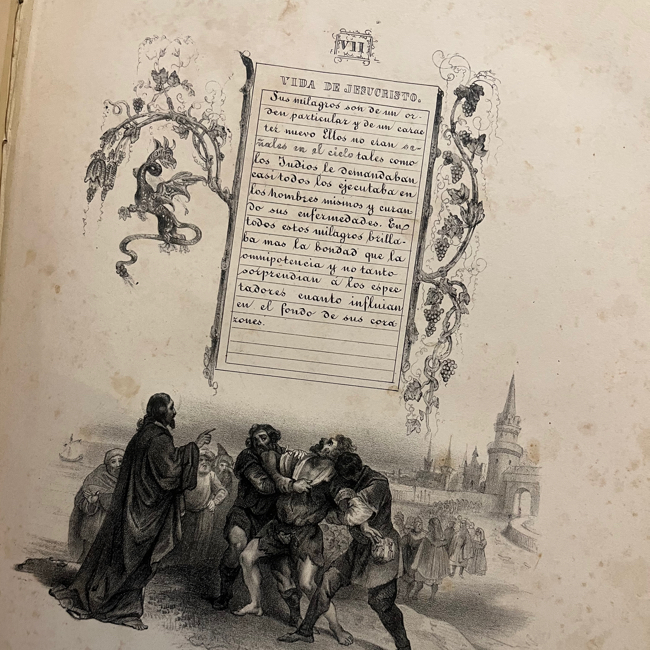 VII
VIDA DE JESUCRISTO.
Sus milagros son de un or-
den particular y de un carac
ter nuevo Ellos no eran se-
ñales en el cielo tales como
los Judios le demandaban
casi todos los ejecutaba en
los hombres mismos y curan
do sus enfermedades. En
todos estos milagros brilla-
ba mas la bondad que la
omnipotencia y no tanto
sorprendian á los espec
tadores cuanto influian
en el fondo de sus cora
zones.